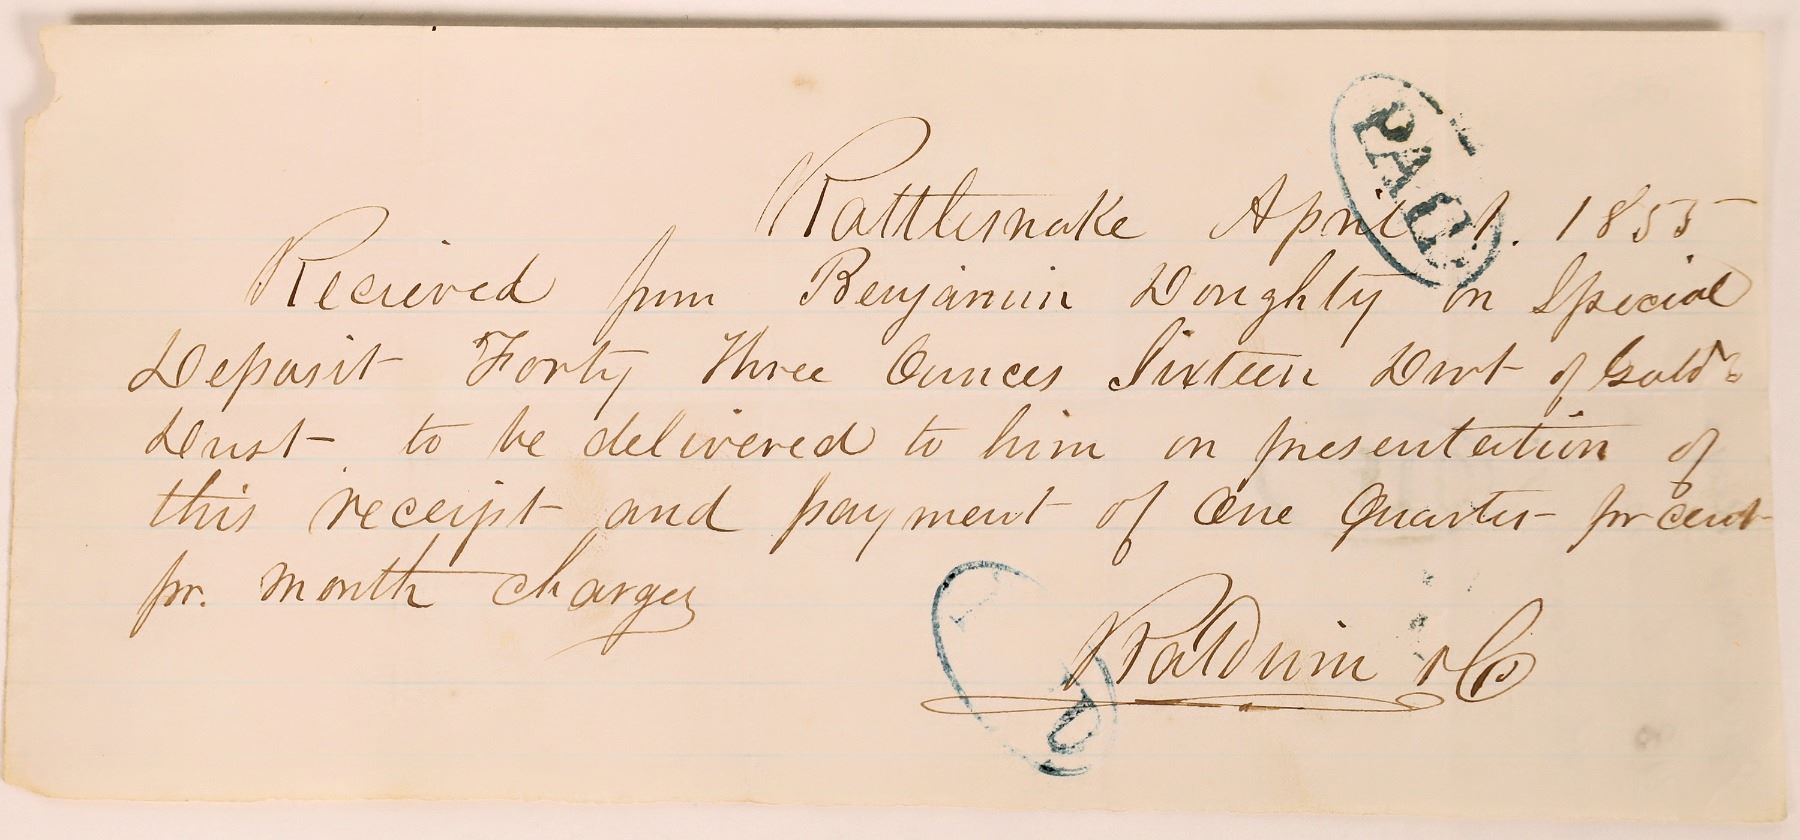 Rattlesnake April 1. 1855
Recieved from Benjamin Doughty on Special
Deposit Forty Three Ounces Sixteen Dwt of Gold
Dust to be delivered to him on presentation of
this receipt and payment of One Quarter pr cent
pr. month charges
Baldwin & Co